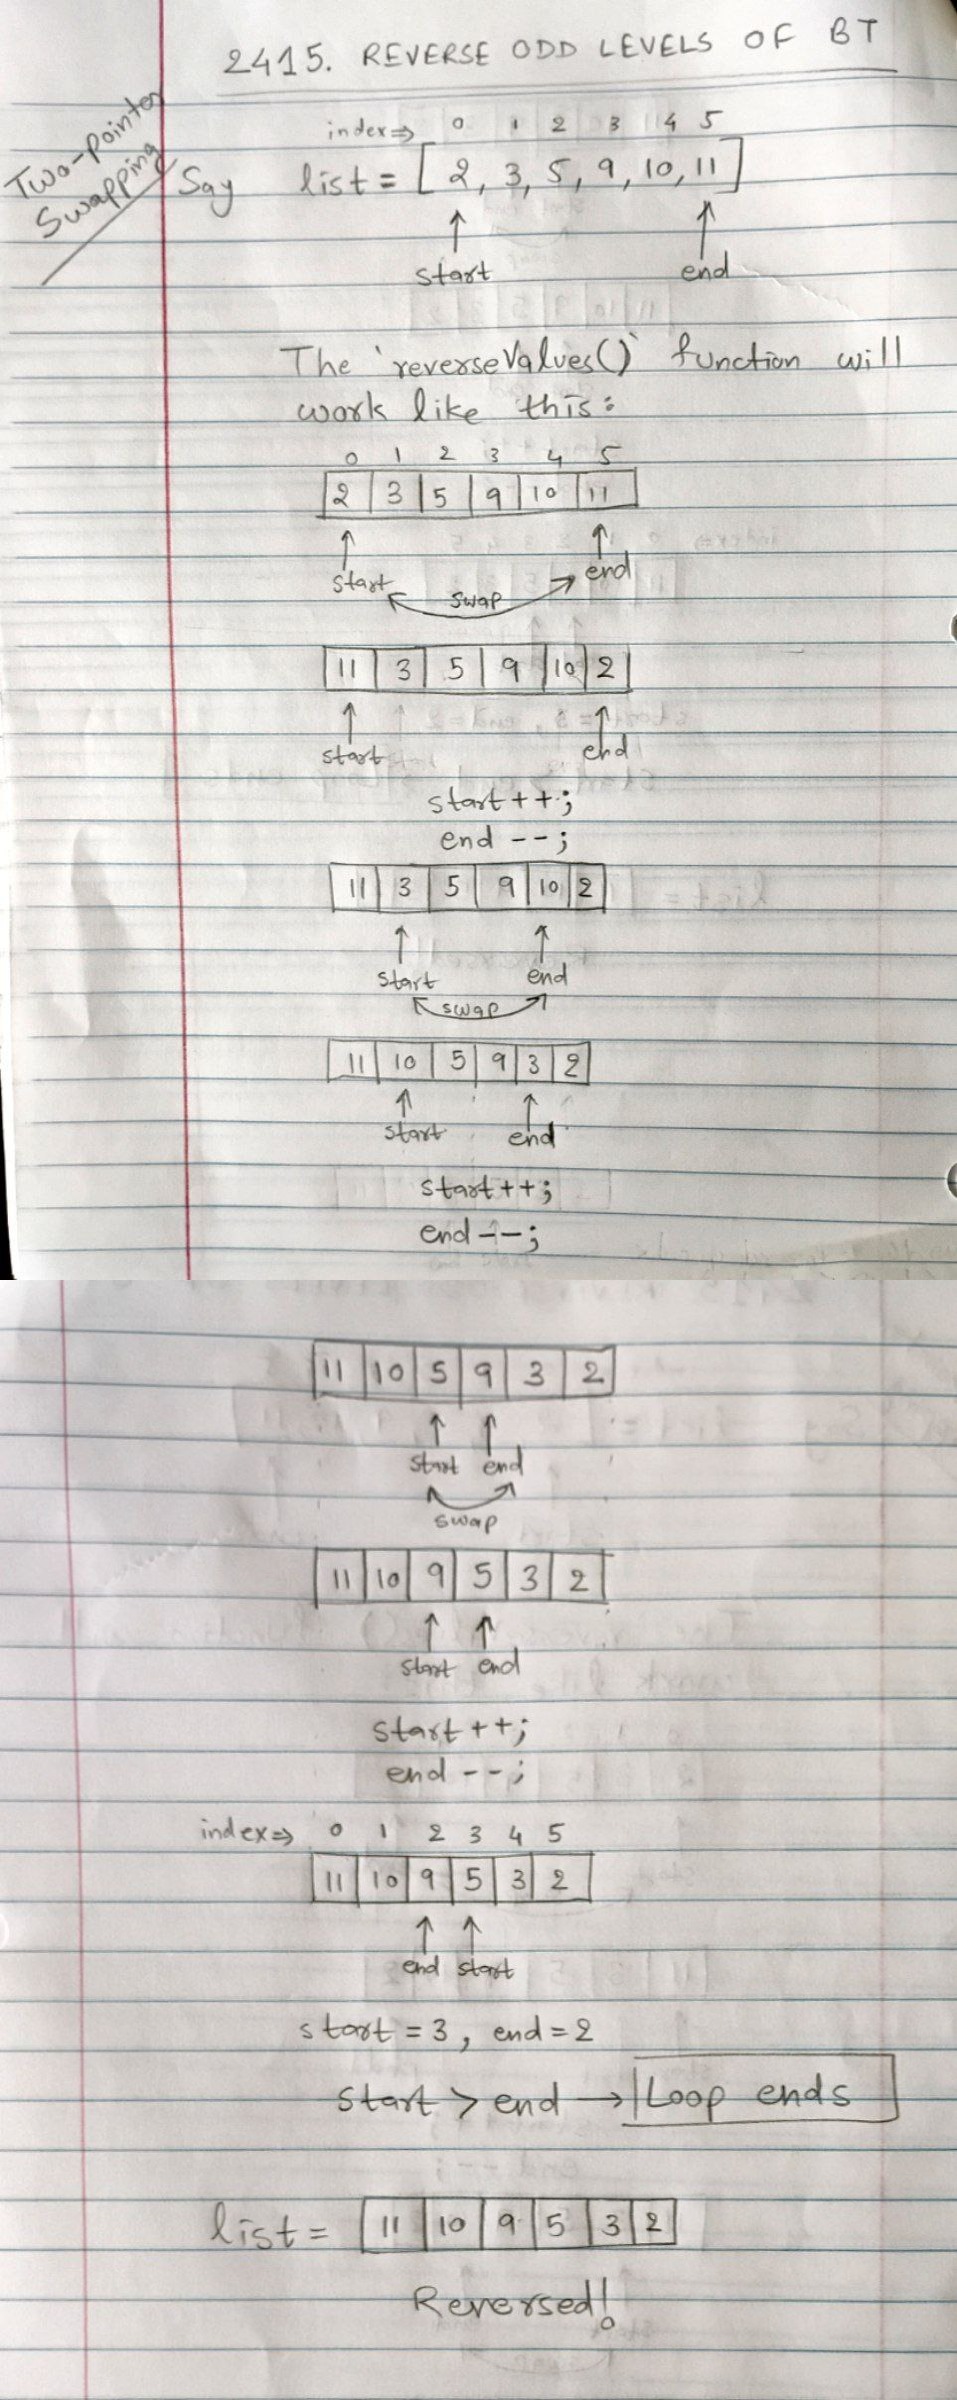 2415. REVERSE ODD LEVELS OF BT
Two-pointer
Swapping
index⇒ 0 1 2 3 4 5
Say list = [2, 3, 5, 9, 10, 11]
start end
The 'reverseValues()' function will
work like this:
0 1 2 3 4 5
2 3 5 9 10 11
start end
swap
11 3 5 9 10 2
start end
start++;
end--;
11 3 5 9 10 2
start end
swap
11 10 5 9 3 2
start end
start++;
end--;
11 10 5 9 3 2
start end
swap
11 10 9 5 3 2
start end
start++;
end--;
index⇒ 0 1 2 3 4 5
11 10 9 5 3 2
end start
start = 3, end = 2
start > end → Loop ends
list = 11 10 9 5 3 2
Reversed!